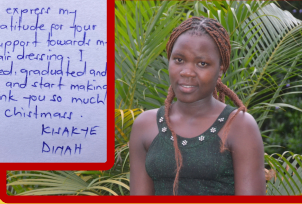 express my
atitude for your
upport towards m
air dressing. I
ed, graduated and
and start making
nk you so much
christmass.
KWAKYE
DINAH